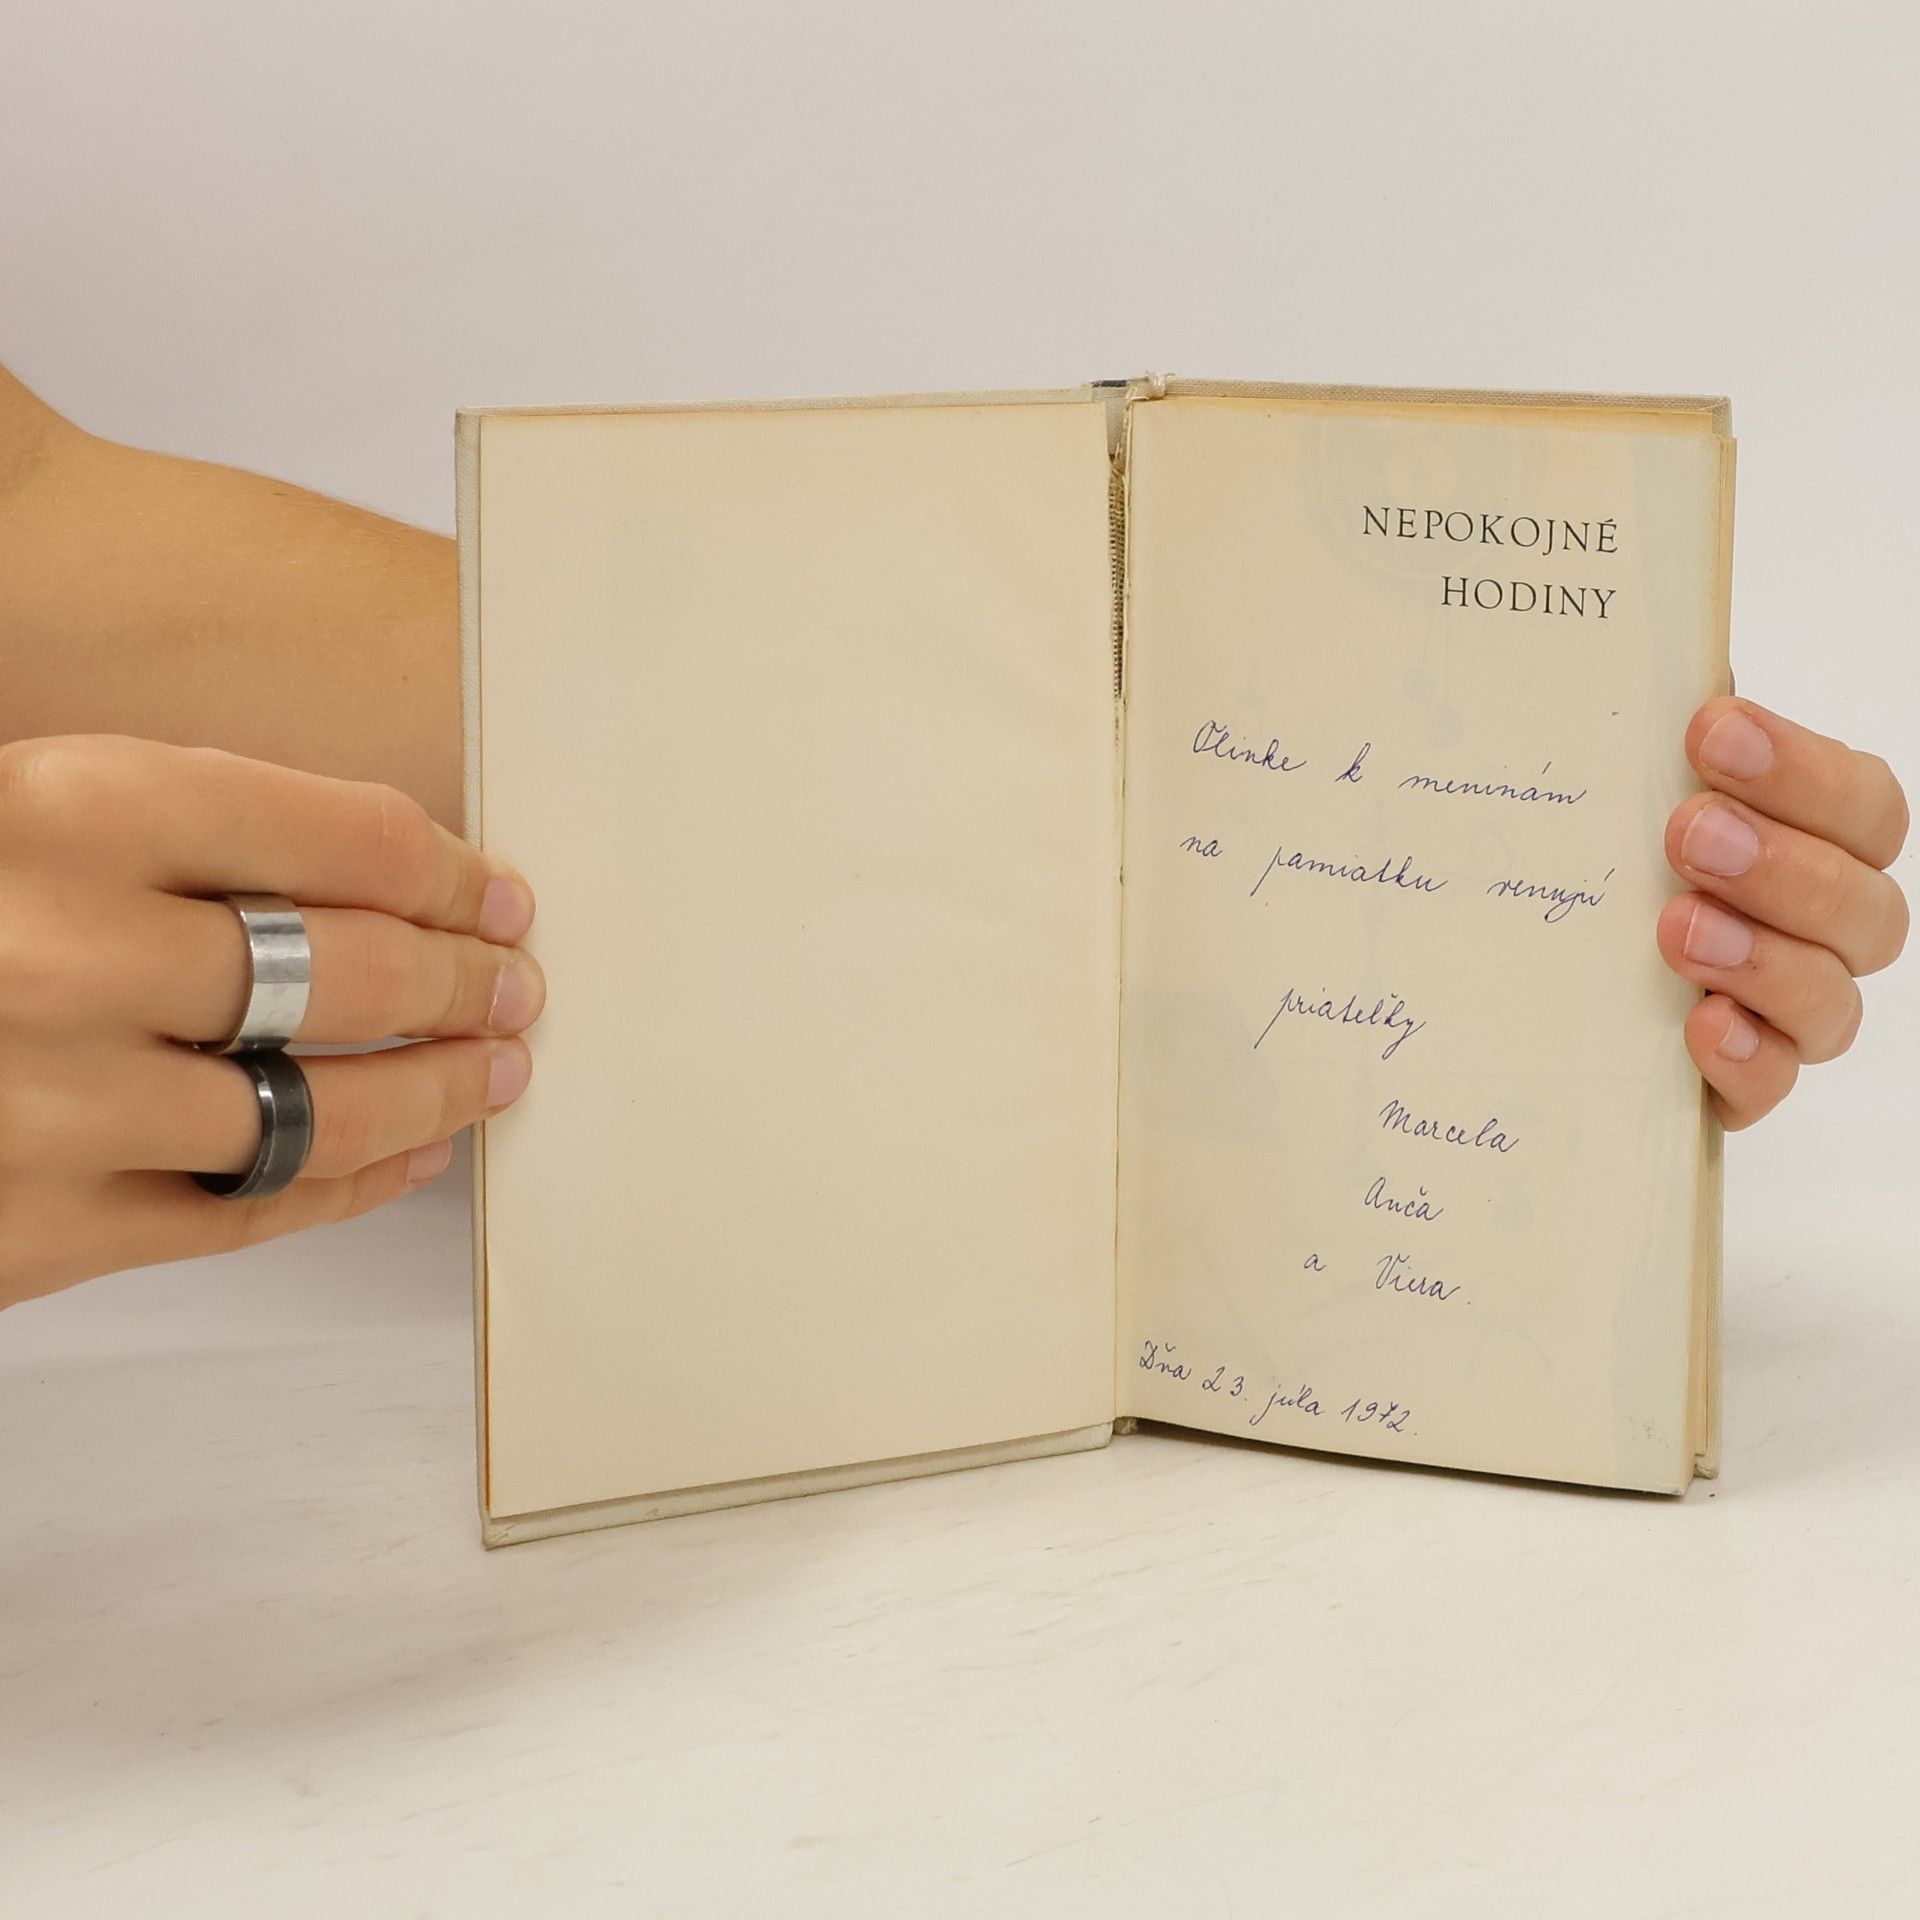 NEPOKOJNÉ
HODINY
Olinke k meninám
na pamiatku venujú
priateľky
Marcela
Anča
a Viera.
Dňa 23. júla 1972.